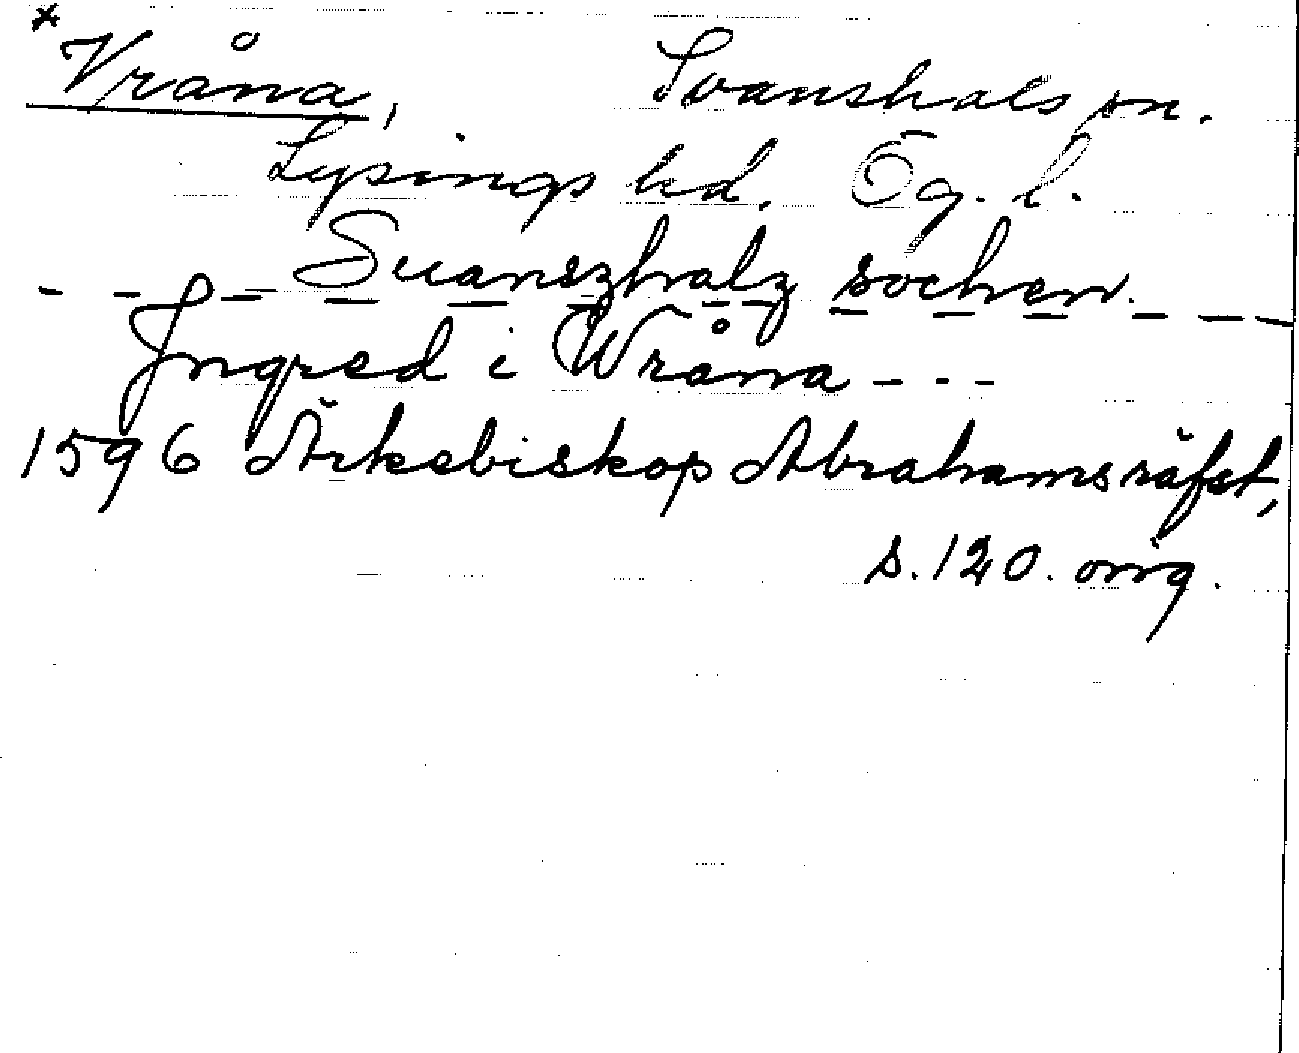 * Vråna, Svanshals sn.
Lysings hd. Ög. l.
Suanszhalz sochen.
Jngred i Wråna - - -
1596 Ärkebiskop Abrahams räfst,
s. 120. orig.